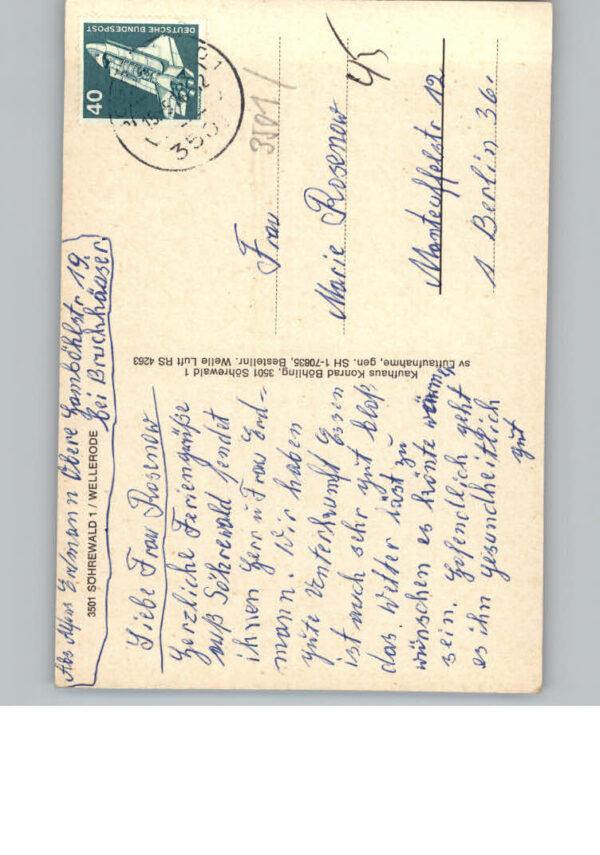 Abs Alfons Erdmann Obere Gamböhlstr 19.
bei Bruchhässer.
3501 SÖHREWALD 1 / WELLERODE
Liebe Frau Rosenow
Herzliche Feriengrüße
auß Söhrewald sendet
ihnen Herr u Frau Erd-
mann. Wir haben
gute Unterkunft Essen
ist auch sehr gut bloß
das Wetter läst zu
wünschen es könte wärmer
sein. Hofendlich geht
es ihn gesundheitlich
gut
Kaufhaus Konrad Böhling, 3501 Söhrewald 1
sv Luftaufnahme, gen. SH 1-70835, Bestellnr. Welle Luft RS 4263
DEUTSCHE BUNDESPOST
40
3501/
45
Frau
Marie Rosenow
Manteuffelstr 12
1 Berlin 36.